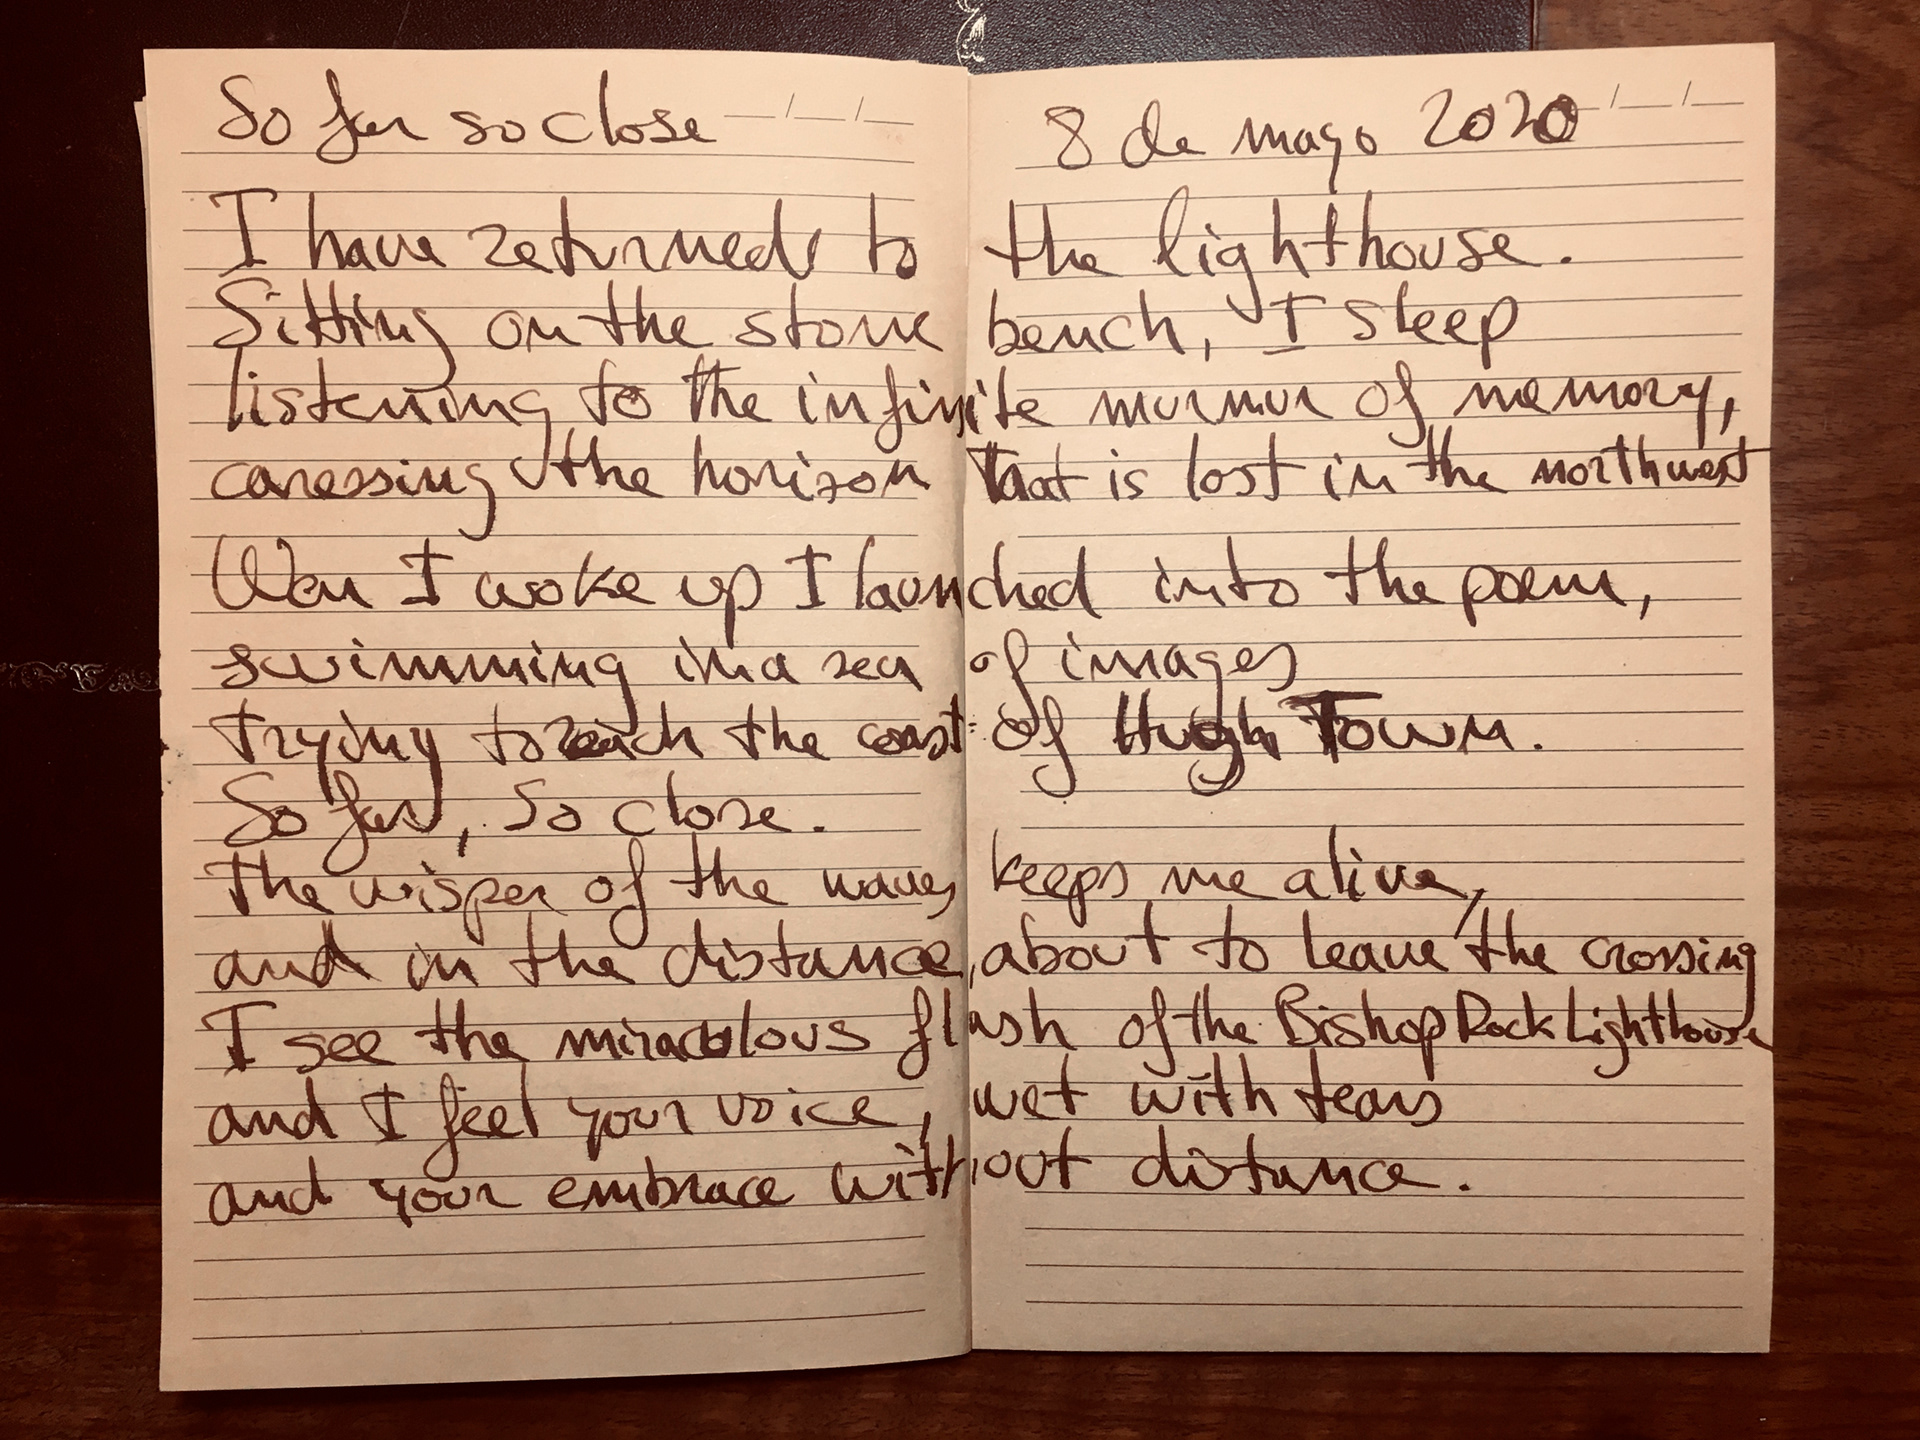 So far so close 8 de mayo 2020
I have returned to the lighthouse.
Sitting on the stone bench, I sleep
listening to the infinite murmur of memory,
caressing the horizon that is lost in the northwest
Wen I woke up I launched into the poem,
swimming in a sea of images
trying to reach the coast of Hugh Town.
So far, so close.
The wisper of the waves keeps me alive,
and in the distance, about to leave the crossing
I see the miraculous flash of the Bishop Rock Lighthouse
and I feel your voice, wet with tears
and your embrace without distance.